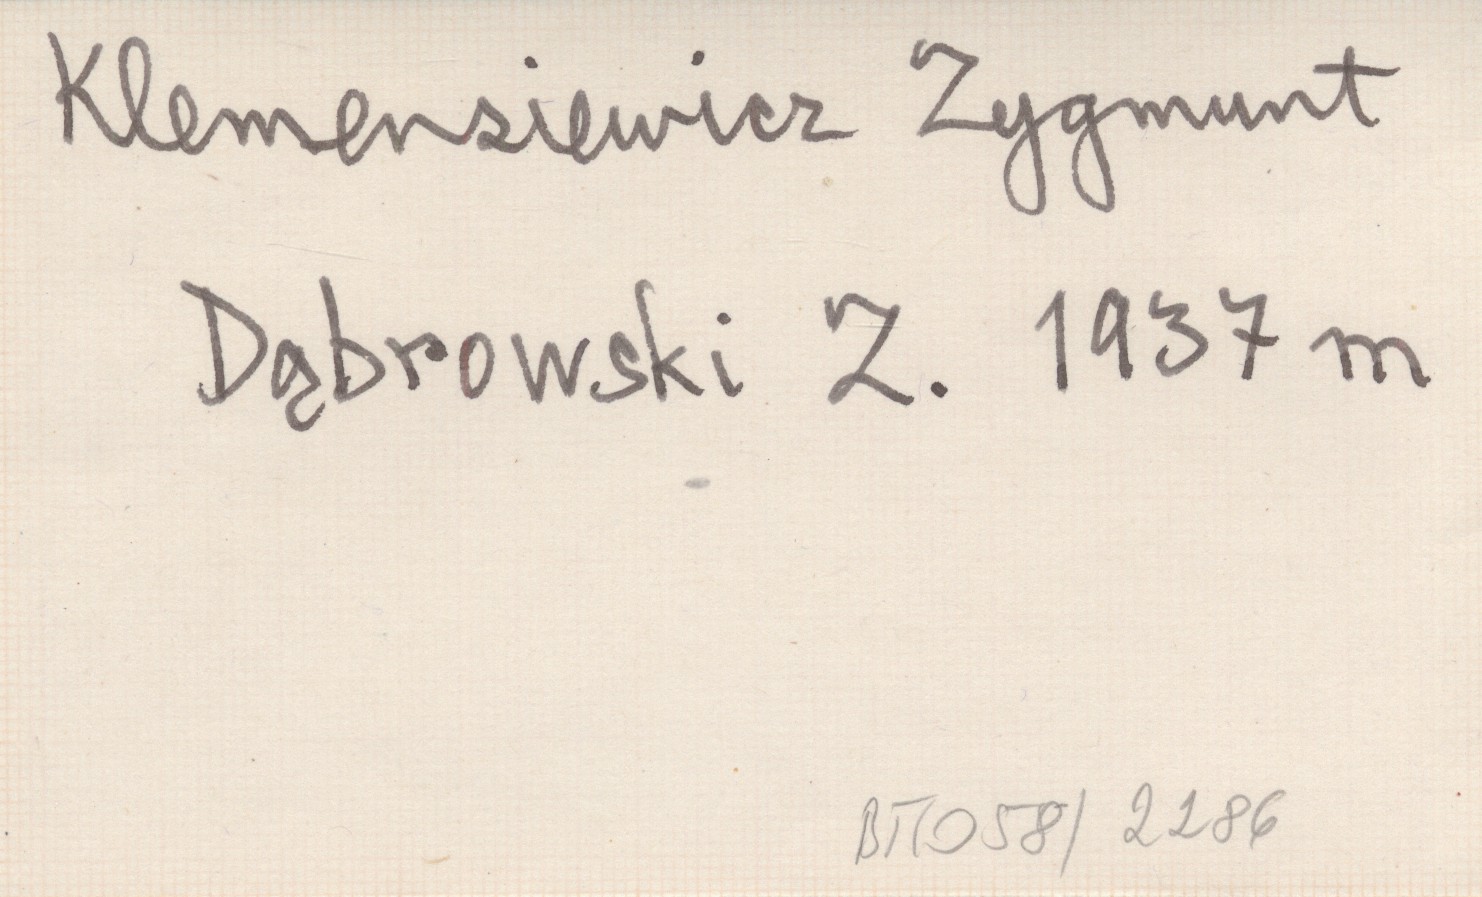 Klemensiewicz Zygmunt
Dąbrowski Z. 1937 m
BTO58/ 2286